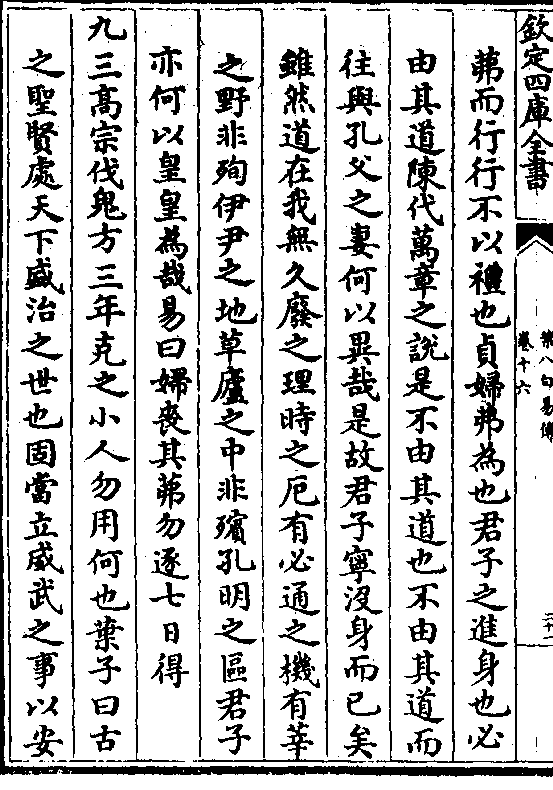 欽定四庫全書
葉八白易傳
卷十六
茀而行行不以禮也貞婦弗為也君子之進身也必
由其道陳代萬章之說是不由其道也不由其道而
往與孔父之妻何以異哉是故君子寧沒身而已矣
雖然道在我無久廢之理時之厄有必通之機有莘
之野非殉伊尹之地草廬之中非殯孔明之區君子
亦何以皇皇為哉易曰婦喪其茀勿逐七日得
九三高宗伐鬼方三年克之小人勿用何也葉子曰古
之聖賢處天下盛治之世也固當立威武之事以安